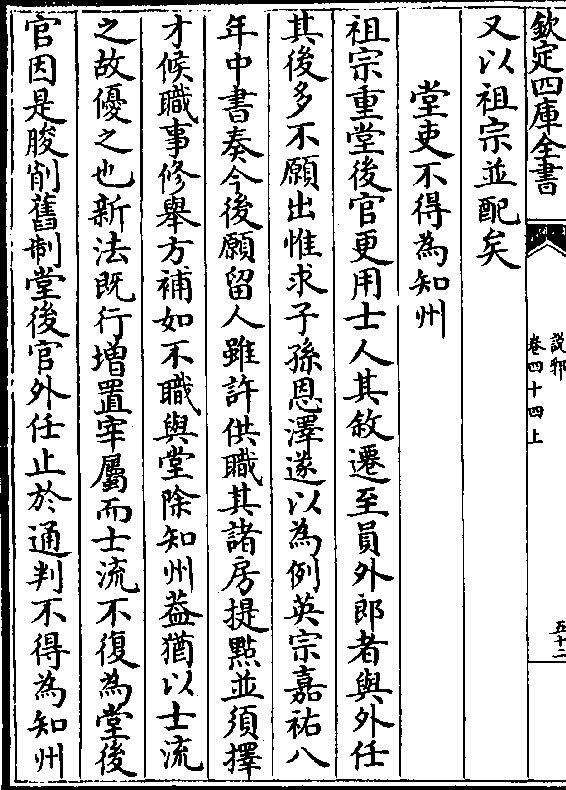 欽定四庫全書
說郛
卷四十四上
五十二
又以祖宗並配矣
堂吏不得為知州
祖宗重堂後官更用士人其敘遷至員外郎者與外任
其後多不願出惟求子孫恩澤遂以為例英宗嘉祐八
年中書奏今後願留人雖許供職其諸房提點並須擇
才候職事修舉方補如不職與堂除知州葢猶以士流
之故優之也新法既行増置宰屬而士流不復為堂後
官因是朘削舊制堂後官外任止於通判不得為知州